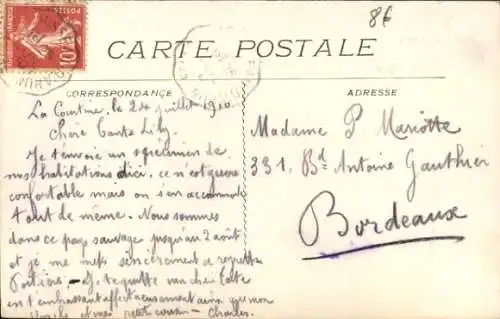 8€
CARTE POSTALE
CORRESPONDANCE
ADRESSE
La Courtine, le 24 juillet 1910
Chère Tante Lily,
Je t'envoie un spécimen de
nos habitations d'ici, ce n'est guère
confortable mais on s'en accommode
tout de même. Nous sommes
dans ce pays sauvage jusqu'au 2 août
et je me mets sincèrement à regretter
Poitiers - Je te quitte ma chère Tante
en t'embrassant affectueusement ainsi que mon
oncle et mes petits cousins - Charles.
Madame P Mariotte
331, Bd Antoine Gauthier
Bordeaux
POSTES
10